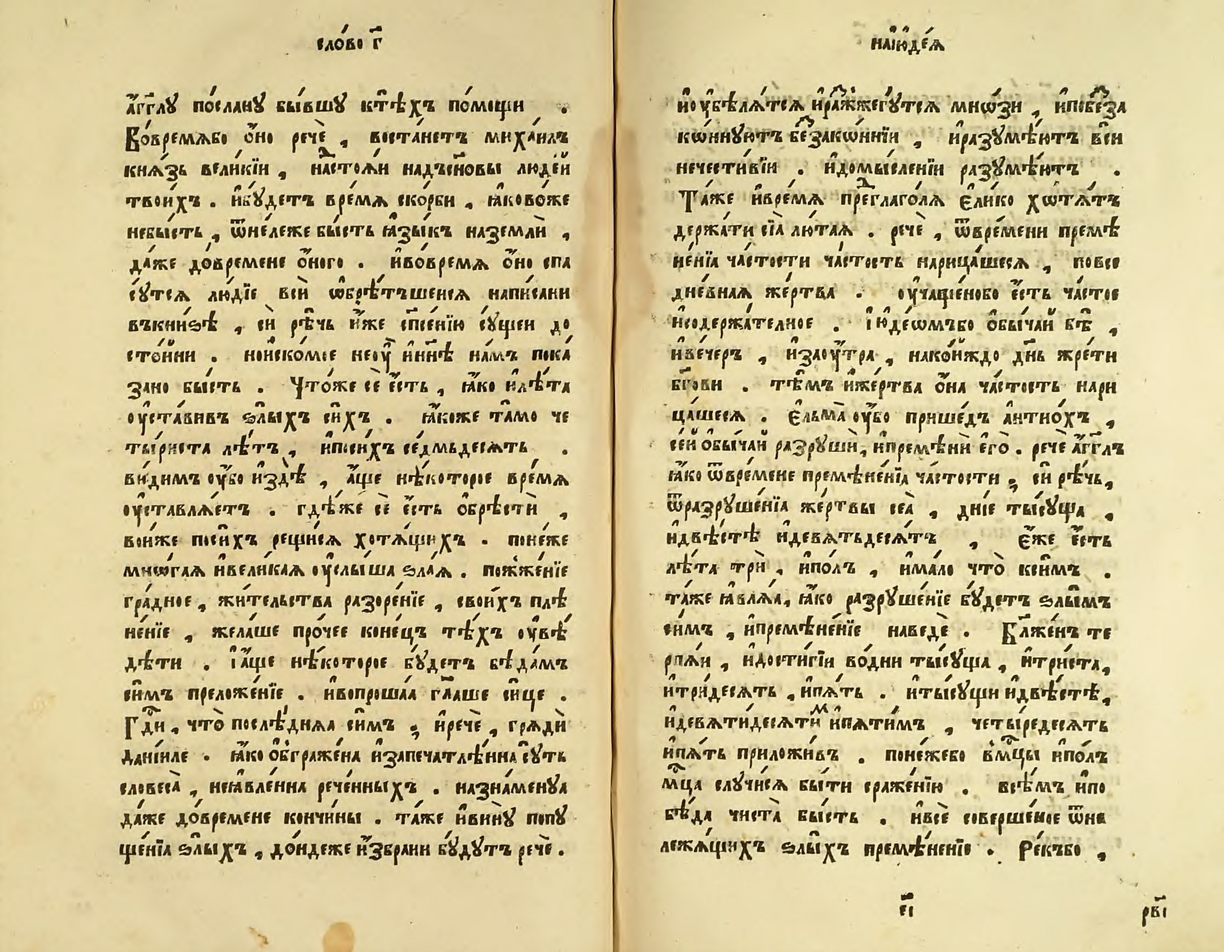 сло́во г҃
а҆́гг҃лꙋ по́сланꙋ бы́вшꙋ ктѣ́хъ по́мощи .
Во́времѧбо о҆но речѐ , воста́нетъ миха́илъ
кнѧ́зь вели́кїи , настоѧ́и надъсн҃овы люде́й
твои́хъ . и҆бꙋ́детъ вре́мѧ ско́рби , ꙗ҆ково́же
небы́сть , ѿне́лѣже бы́сть ꙗ҆зы́къ наземлѝ ,
да́же до́времене о҆ного . и҆вовре́мѧ о҆но спа
сꙋ́тсѧ лю́дїе всѝ ѡ҆брѣ́тъшеисѧ напи́сани
въкни́зѣ , сѝ рѣ́чь и҆́же сп҃се́нїю сꙋ́щеи до
сто́йни . но́иско́мое неоу҆̀ и҆́ннѣ на́мъ пока́
зано бы́сть . Что́же сѐ є҆́сть , ꙗ҆́ко и҆лѣ́та
оу҆ста́вивъ ѕлы́хъ си́хъ . ꙗ҆́коже та́мо че
ты́риста лѣ́тъ , и҆пси́хъ се́дмьдесѧтъ .
ви́димъ оу҆́бо и҆здѣ̀ , а҆́ще нѣ́которое вре́мѧ
оу҆ставлѧ́етъ . гдѣ́же сѐ є҆́сть о҆брѣсти ,
во́иже поси́хъ рещи́исѧ хотѧ́щихъ . поне́же
мнѡ́гаѧ и҆вели́каѧ оу҆слы́ша ѕла́ѧ . пожже́нїе
гра́дное , жи́тельства разоре́нїе , свои́хъ плѣ
не́нїе , жела́ше про́чее коне́цъ тѣ́хъ оу҆вѣ́
дѣти . і҆а҆́ще нѣ́которое бꙋ́детъ бѣда́мъ
си́мъ преложе́нїе . и҆вопроша́ѧ гл҃аше си́це .
Гдⷭ҇и , что̀ послѣ́днѧѧ си́мъ ; и҆речѐ , грѧдѝ
дани́иле . ꙗ҆́ко о҆бгражена и҆запечатлѣ́нна сꙋ́ть
словеса̀ , неꙗ҆вле́нна рече́нныхъ . назна́менꙋѧ
да́же до́времене кончи́ны . та́же и҆винꙋ̀ попꙋ
ще́нїѧ ѕлы́хъ , до́ндеже и҆збра́ни бꙋ́дꙋтъ речѐ .
наїю҆де́ѧ
и҆оу҆бѣлѧ́тсѧ и҆раⷤжегꙋ́тсѧ мнѡ́зи , и҆побеⷥза
кѡннꙋютъ беⷥзако́нниїи , и҆разꙋмѣ́ютъ вси
нечести́вїи . и҆домы́сленїи разꙋмѣ́ютъ .
Та́же и҆вре́мѧ преⷣглаго́лѧ є҆ли́ко хотѧ́тъ
держа́ти сїѧ̀ лю́таѧ . речѐ , ѿвре́мени премѣ
не́нїѧ ча́стости ча́стость нарица́шесѧ , повсе
дне́внаѧ же́ртва . оу҆ча́щено́бо є҆́сть ча́стое
неодержа́телное . і҆ю҆де́ѡмъбо о҆бы́чай бѣ̀ ,
и҆ве́черъ , и҆заоу́тра , нако́йждо дн҃ь жре́ти
бг҃ови . тѣ́мъ и҆же́ртва о҆на ча́стость нари
ца́шесѧ . є҆льма̀ оу҆́бо прише́дъ антио́хъ ,
се́й о҆бы́чай разрꙋшѝ , и҆премѣнѝ є҆го̀ . речѐ а҆́гг҃лъ
ꙗ҆́ко ѿвре́мене премѣне́нїѧ ча́стости ; сѝ рѣ́чь,
ѿразрꙋше́нїѧ же́ртвы сеѧ̀ , дні́е ты́сꙋща ,
и҆две́стѣ и҆де́вѧтьдесѧтъ , є҆́же є҆́сть
лѣ́та трѝ , и҆по́лъ , и҆ма́ло что̀ кси́мъ .
та́же ꙗ҆влѧ́ѧ, ꙗ҆́ко разрꙋше́нїе бꙋ́детъ ѕлы́мъ
си́мъ , и҆премѣне́нїе наведѐ . Бл҃же́нъ те
рпѧ́и , и҆дости́гїи во́дни ты́сꙋща , и҆три́ста,
и҆три́десѧть , и҆пѧ́ть . и҆ты́сꙋщи и҆две́стѣ,
и҆девѧти́десѧтиⷨ и҆пѧ́тимъ , четы́редесѧть
и҆пѧ́ть приложи́въ . поне́жебо вмⷭ҇цы и҆по́лъ
мⷭ҇ца слꙋчи́сѧ бы́ти сраже́нїю . всѣ́мъ и҆по
бѣ́да чиста̀ бы́сть . и҆всѐ соверше́ное ѿне
лежѧ́щихъ ѕлы́хъ премѣне́нїе . Реко́хбо ,
є҃і
рв҃і